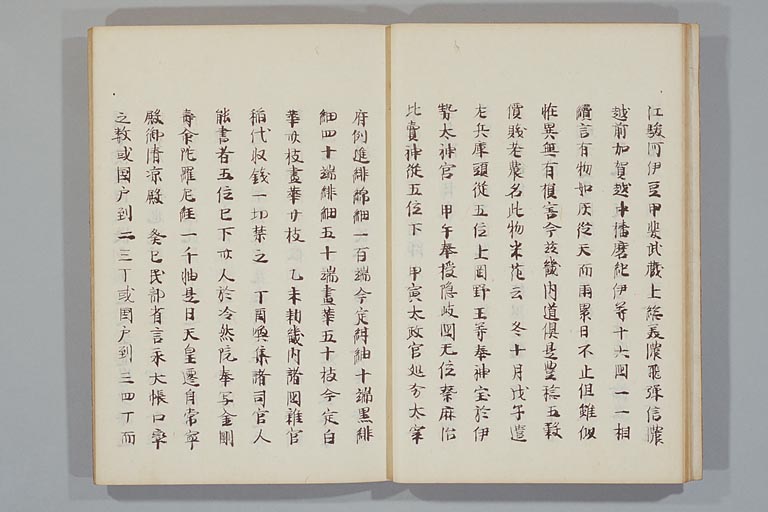 江駿河伊豆甲斐武蔵上総美濃飛弾信濃
越前加賀越中播磨紀伊等十六国一一相
續言有物如灰從天而雨累日不止但雖似
恠異無有損害今玆畿内道俱是豊稔五穀
價賤老農名此物米花云 冬十月戊午遣
左兵庫頭從五位上岡野王等奉神宝於伊
勢太神官 甲午奉授隠岐國无位奈麻治
比賣神從五位下 甲寅太政官処分太宰
府例進緋綿紬一百端今定緋紬十端黒緋
細四十端緋細五十端畫革五十枚今定白
革卅枚畫革廿枚 乙未勅畿内諸國雜官
稲代収錢一切禁之 丁酉喚集諸司官人
能書者五位已下卅人於冷然院奉写金剛
壽命陀羅尼経一千軸是日天皇遷自常寧
殿御清凉殿 癸巳民部省言承大帳口率
之教或国戸到二三丁或国戸到三四丁而